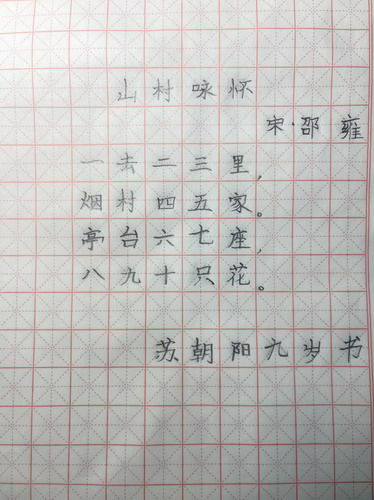 山村咏怀
宋·邵雍
一去二三里，
烟村四五家。
亭台六七座，
八九十只花。
苏朝阳九岁书